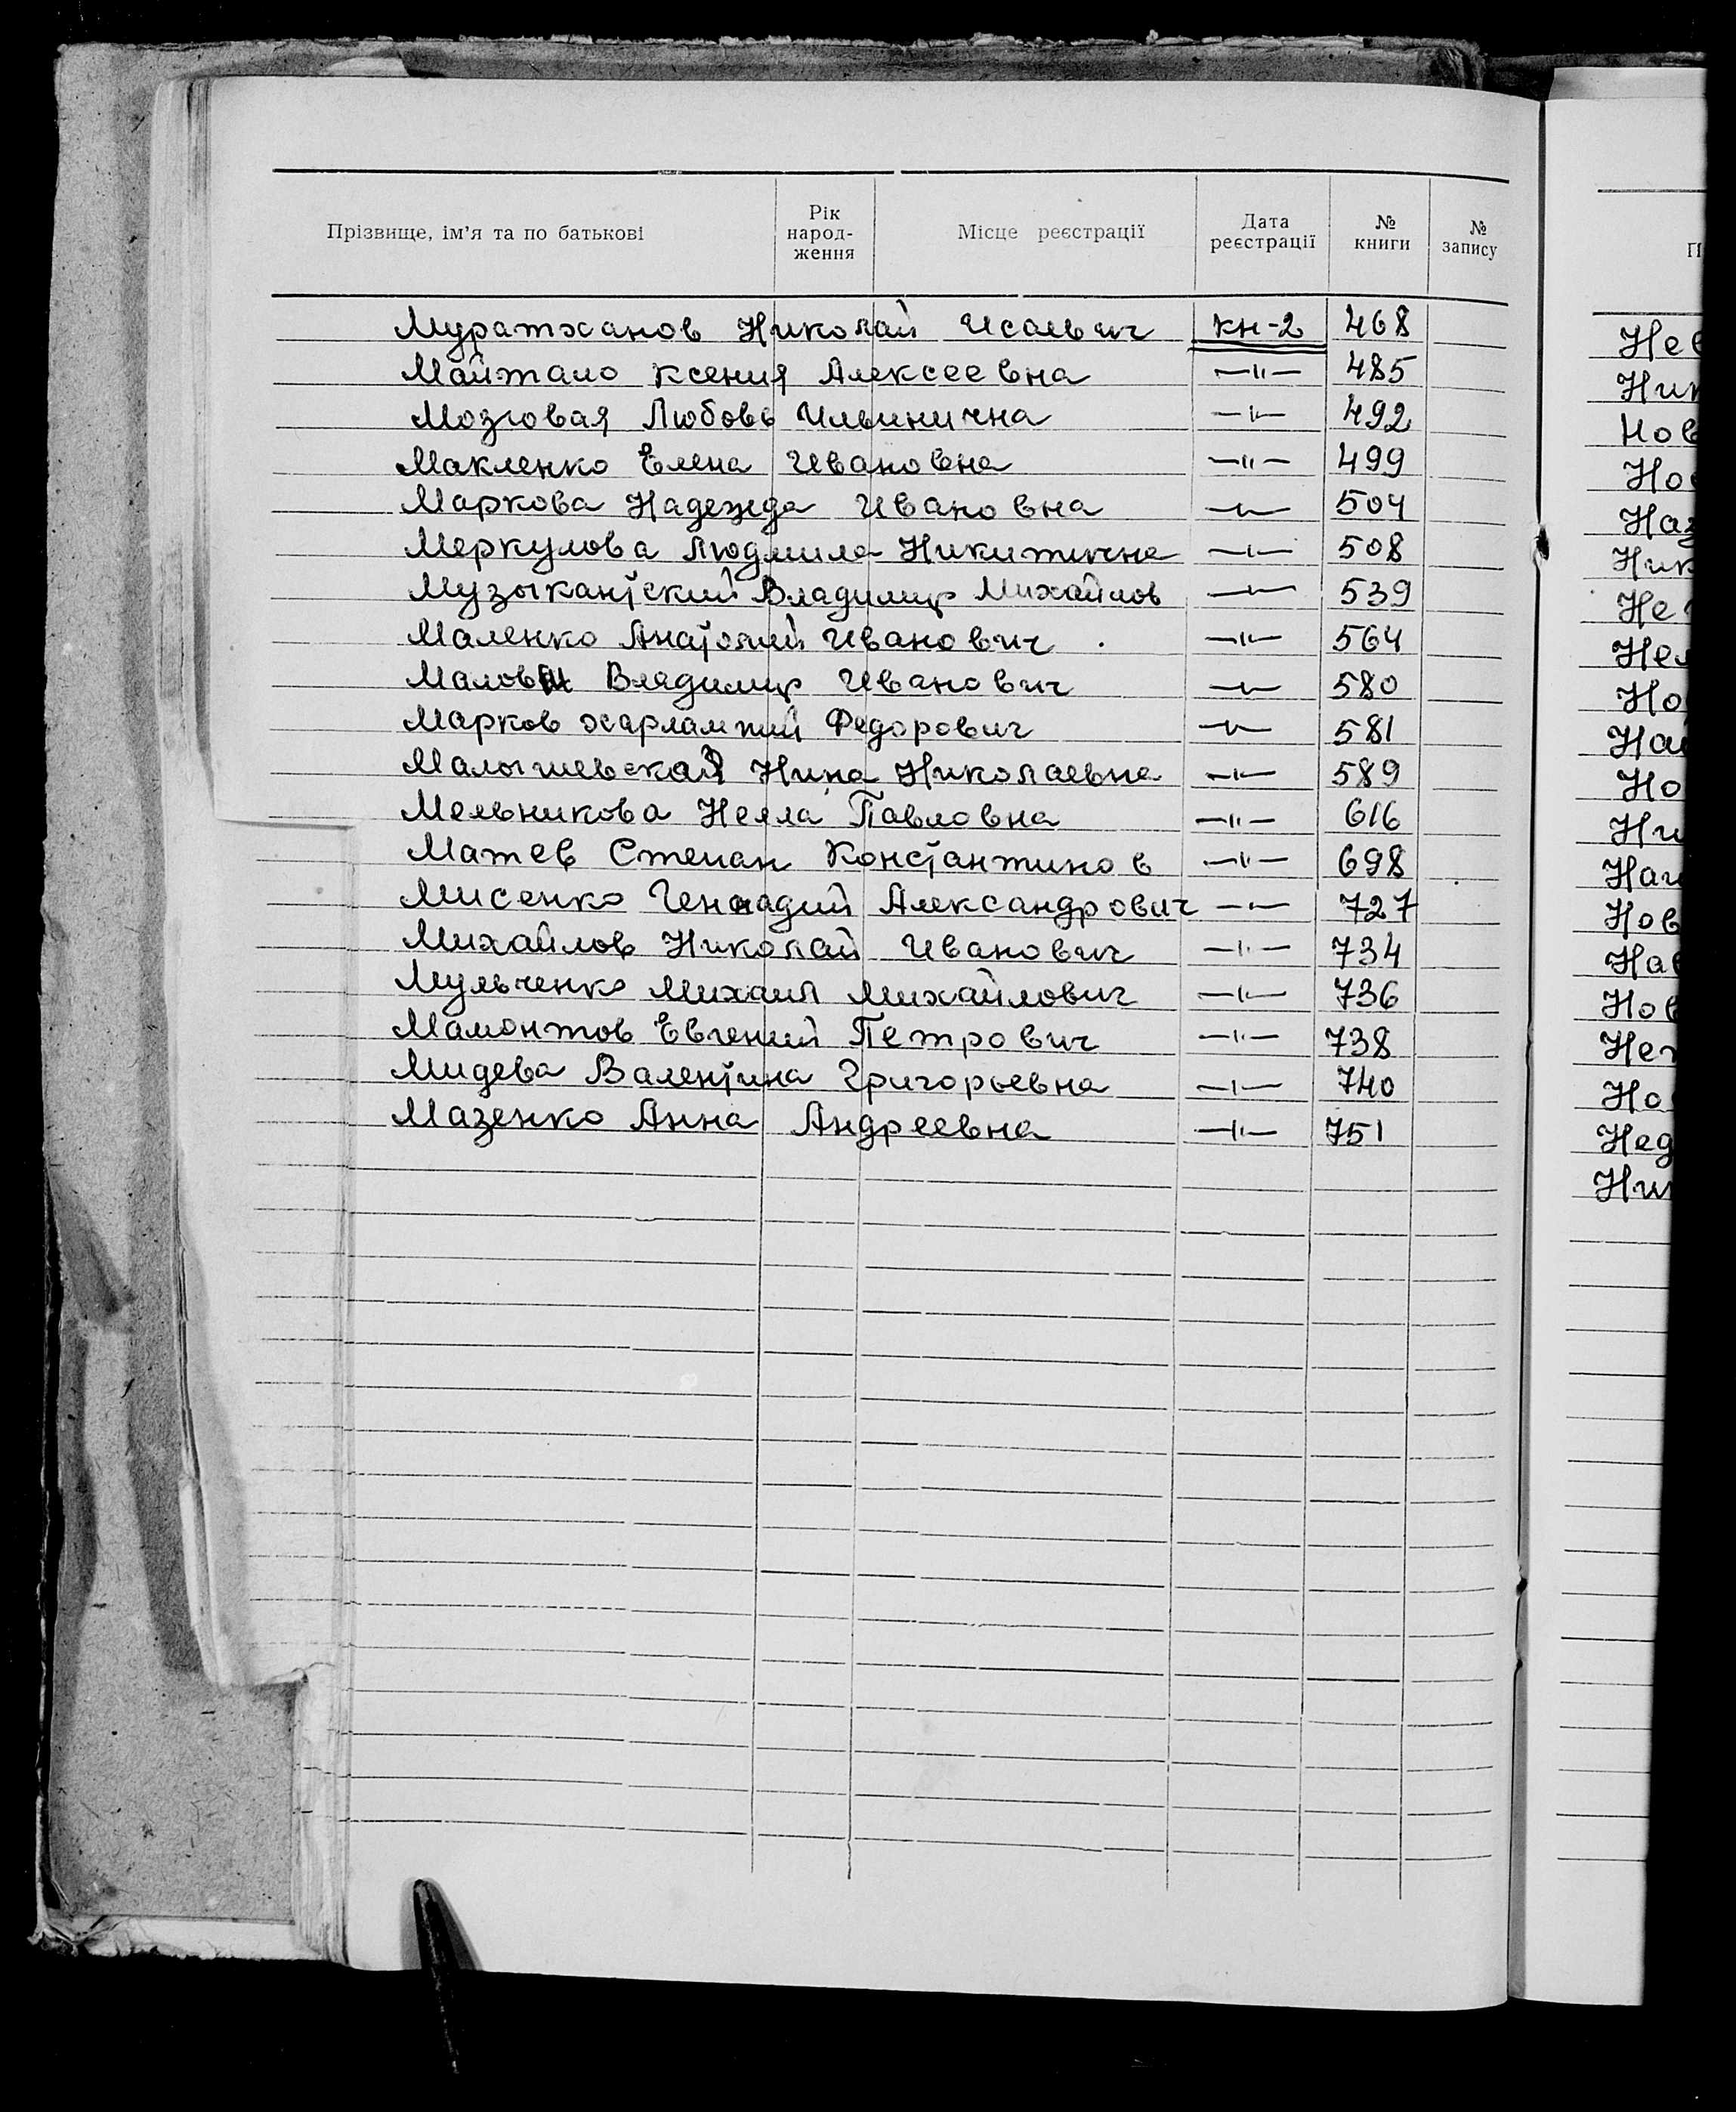 Прізвище, ім'я та по батькові Рік народ-ження Місце реєстрації Дата реєстрації № книги № запису
Муратханов Николай Исаевич кн-2 468
Майтало Ксения Алексеевна —"— 485
Мозговая Любовь Ильинична —"— 492
Макленко Елена Ивановна —"— 499
Маркова Надежда Ивановна —"— 504
Меркулова Людмила Никитична —"— 508
Музыкантский Владимир Михайлов —"— 539
Маленко Анатолий Иванович —"— 564
Малов Владимир Иванович —"— 580
Марков Харлампий Федорович —"— 581
Малышевская Нина Николаевна —"— 589
Мельникова Нелла Павловна —"— 616
Матев Степан Константинов —"— 698
Мисенко Геннадий Александрович —"— 727
Михайлов Николай Иванович —"— 734
Мульченко Михаил Михайлович —"— 736
Мамонтов Евгений Петрович —"— 738
Мидева Валентина Григорьевна —"— 740
Мазенко Анна Андреевна —"— 751